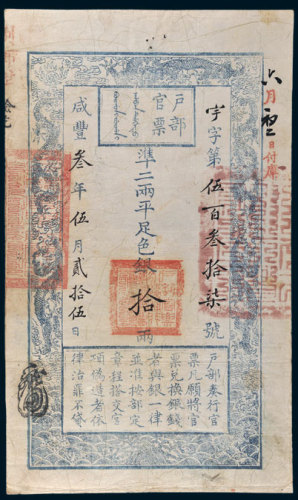 六月初日付庫
宇字第伍百叁拾柒號
戶部
官票
準二兩平足色銀拾兩
咸豐叁年伍月貳拾伍日
戶部奏行官
票凡願將官
票兌換銀錢
者與銀一律
並准按部定
章程搭交官
項偽造者依
律治罪不貸